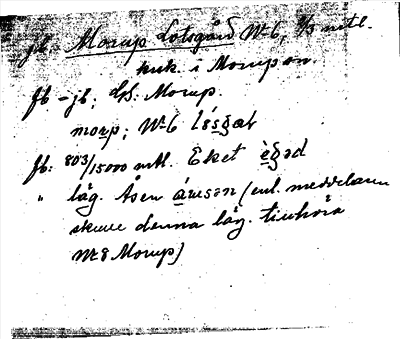 jb. Morup Lotsgård Nr 6, 1/3 mtl.
kuk. i Morup sn.
Jb - jb; Gs: Morup.
morp; Nr 6 lósgaʀ
Jb: 803/15000 mtl. Eket ègəd
" låg. Åsen áusən (enl. meddelaren
skulle denna låg. tillhöra
Nr 8 Morup)